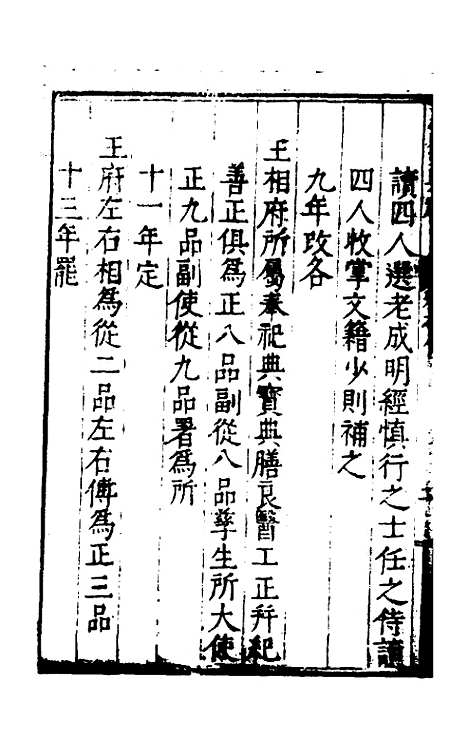 讀四人選老成明經慎行之士任之侍讀
四人收掌文籍少則補之
九年改各
王相府所屬奉祀典寳典膳良醫工正并紀
善正俱爲正八品副從八品孳生所大使
正九品副使從九品署爲所
十一年定
王府左右相爲從二品左右傅爲正三品
十三年罷